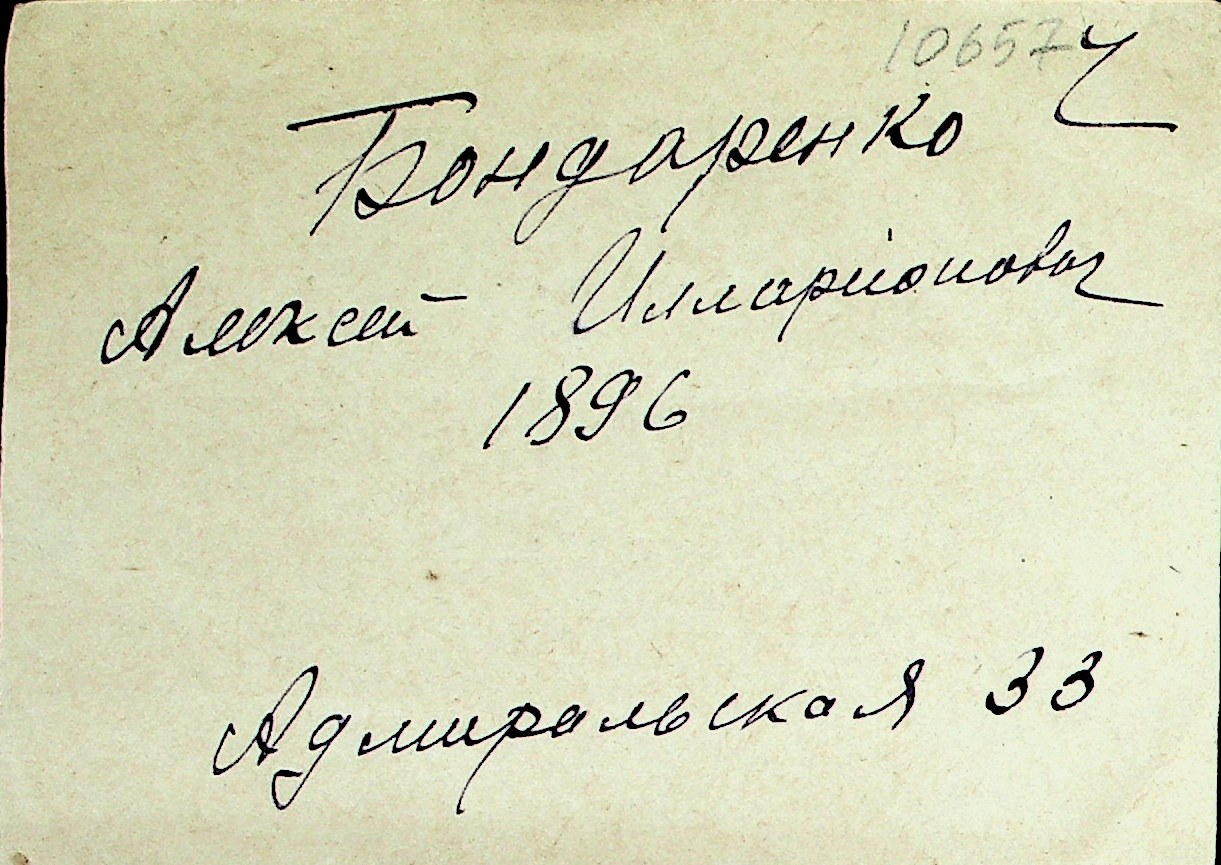 10657
Бондаренко
Алексей Илларионович
1896
Адмиральская 33